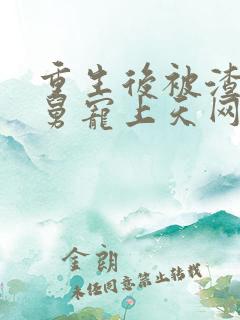 重生後被渣
舅寵上天网
金朗
未经同意禁止转载